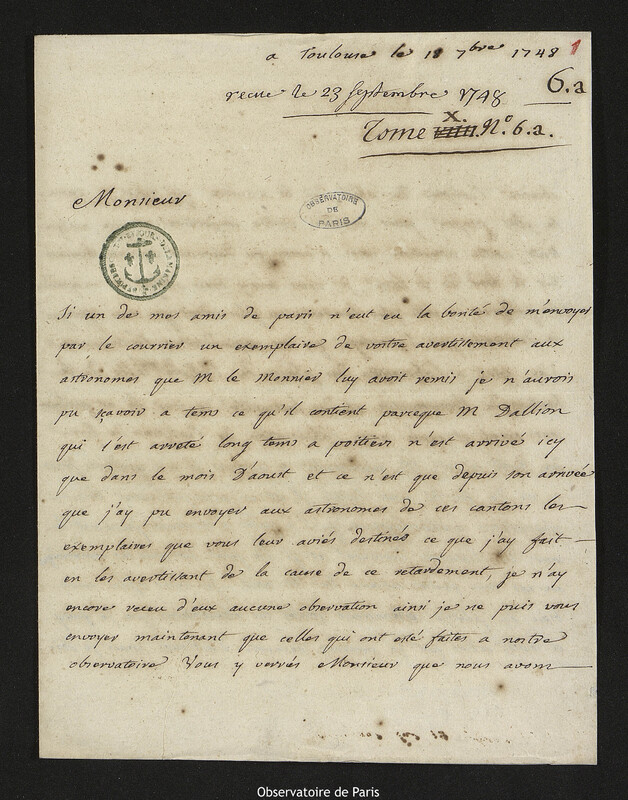 a Toulouse le 18 7bre 1748 1
recue le 23 Septembre 1748 6.a
Tome X. N.º 6.a.
Monsieur
OBSERVATOIRE DE PARIS
Si un de mes amis de paris n'eut eu la bonté de m'envoyer
par le courrier un exemplaire de vostre avertissement aux
astronomes que M le Monnier luy avoit remis je n'aurois
pu sçavoir a tems ce qu'il contient parceque M Dallion
qui s'est arreté long tems a poitiers n'est arrivé icy
que dans le mois D'aoust et ce n'est que depuis son arrivée
que j'ay pu envoyer aux astronomes de ces cantons les
exemplaires que vous leur aviés destinés ce que j'ay fait
en les avertissant de la cause de ce retardement, je n'ay
encore receu d'eux aucune observation ainsi je ne puis vous
envoyer maintenant que celles qui ont esté faites a nostre
observatoire Vous y verrés Monsieur que nous avons
Observatoire de Paris